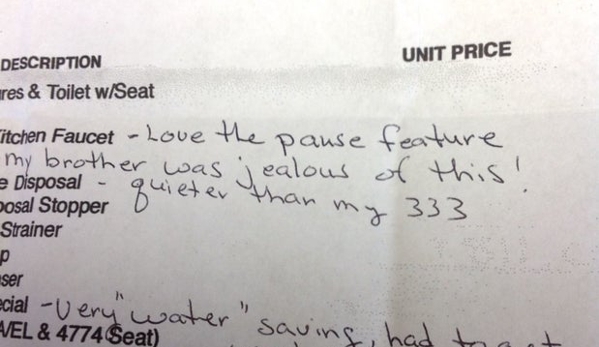 DESCRIPTION UNIT PRICE
res & Toilet w/Seat
itchen Faucet - Love the pause feature
my brother was jealous of this!
e Disposal - quieter than my 333
posal Stopper
Strainer
p
ser
ecial - Very "water" saving, had to get
VEL & 4774 (Seat)